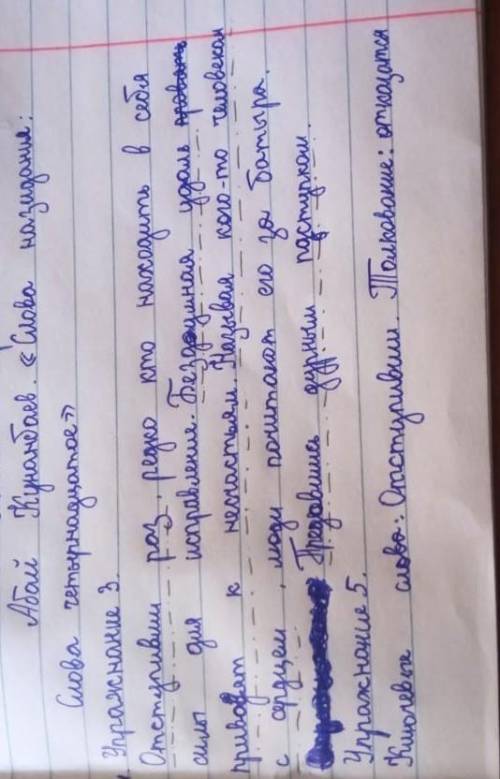 Абай Кунанбаев. «Слова назидания:
Слова четырнадцатое»
Упражнание 3.
Отступивши раз, редко кто находить в себя
силы для исправления. Бездушная удаль
приводят к несчастьям. Называя кого-то человекам
с сердцем, люди почитают его за батыра.
Предавшись дурным паступкам.
Упражнание 5.
Ключевые слово: Отступивши. Толкование: отказатся